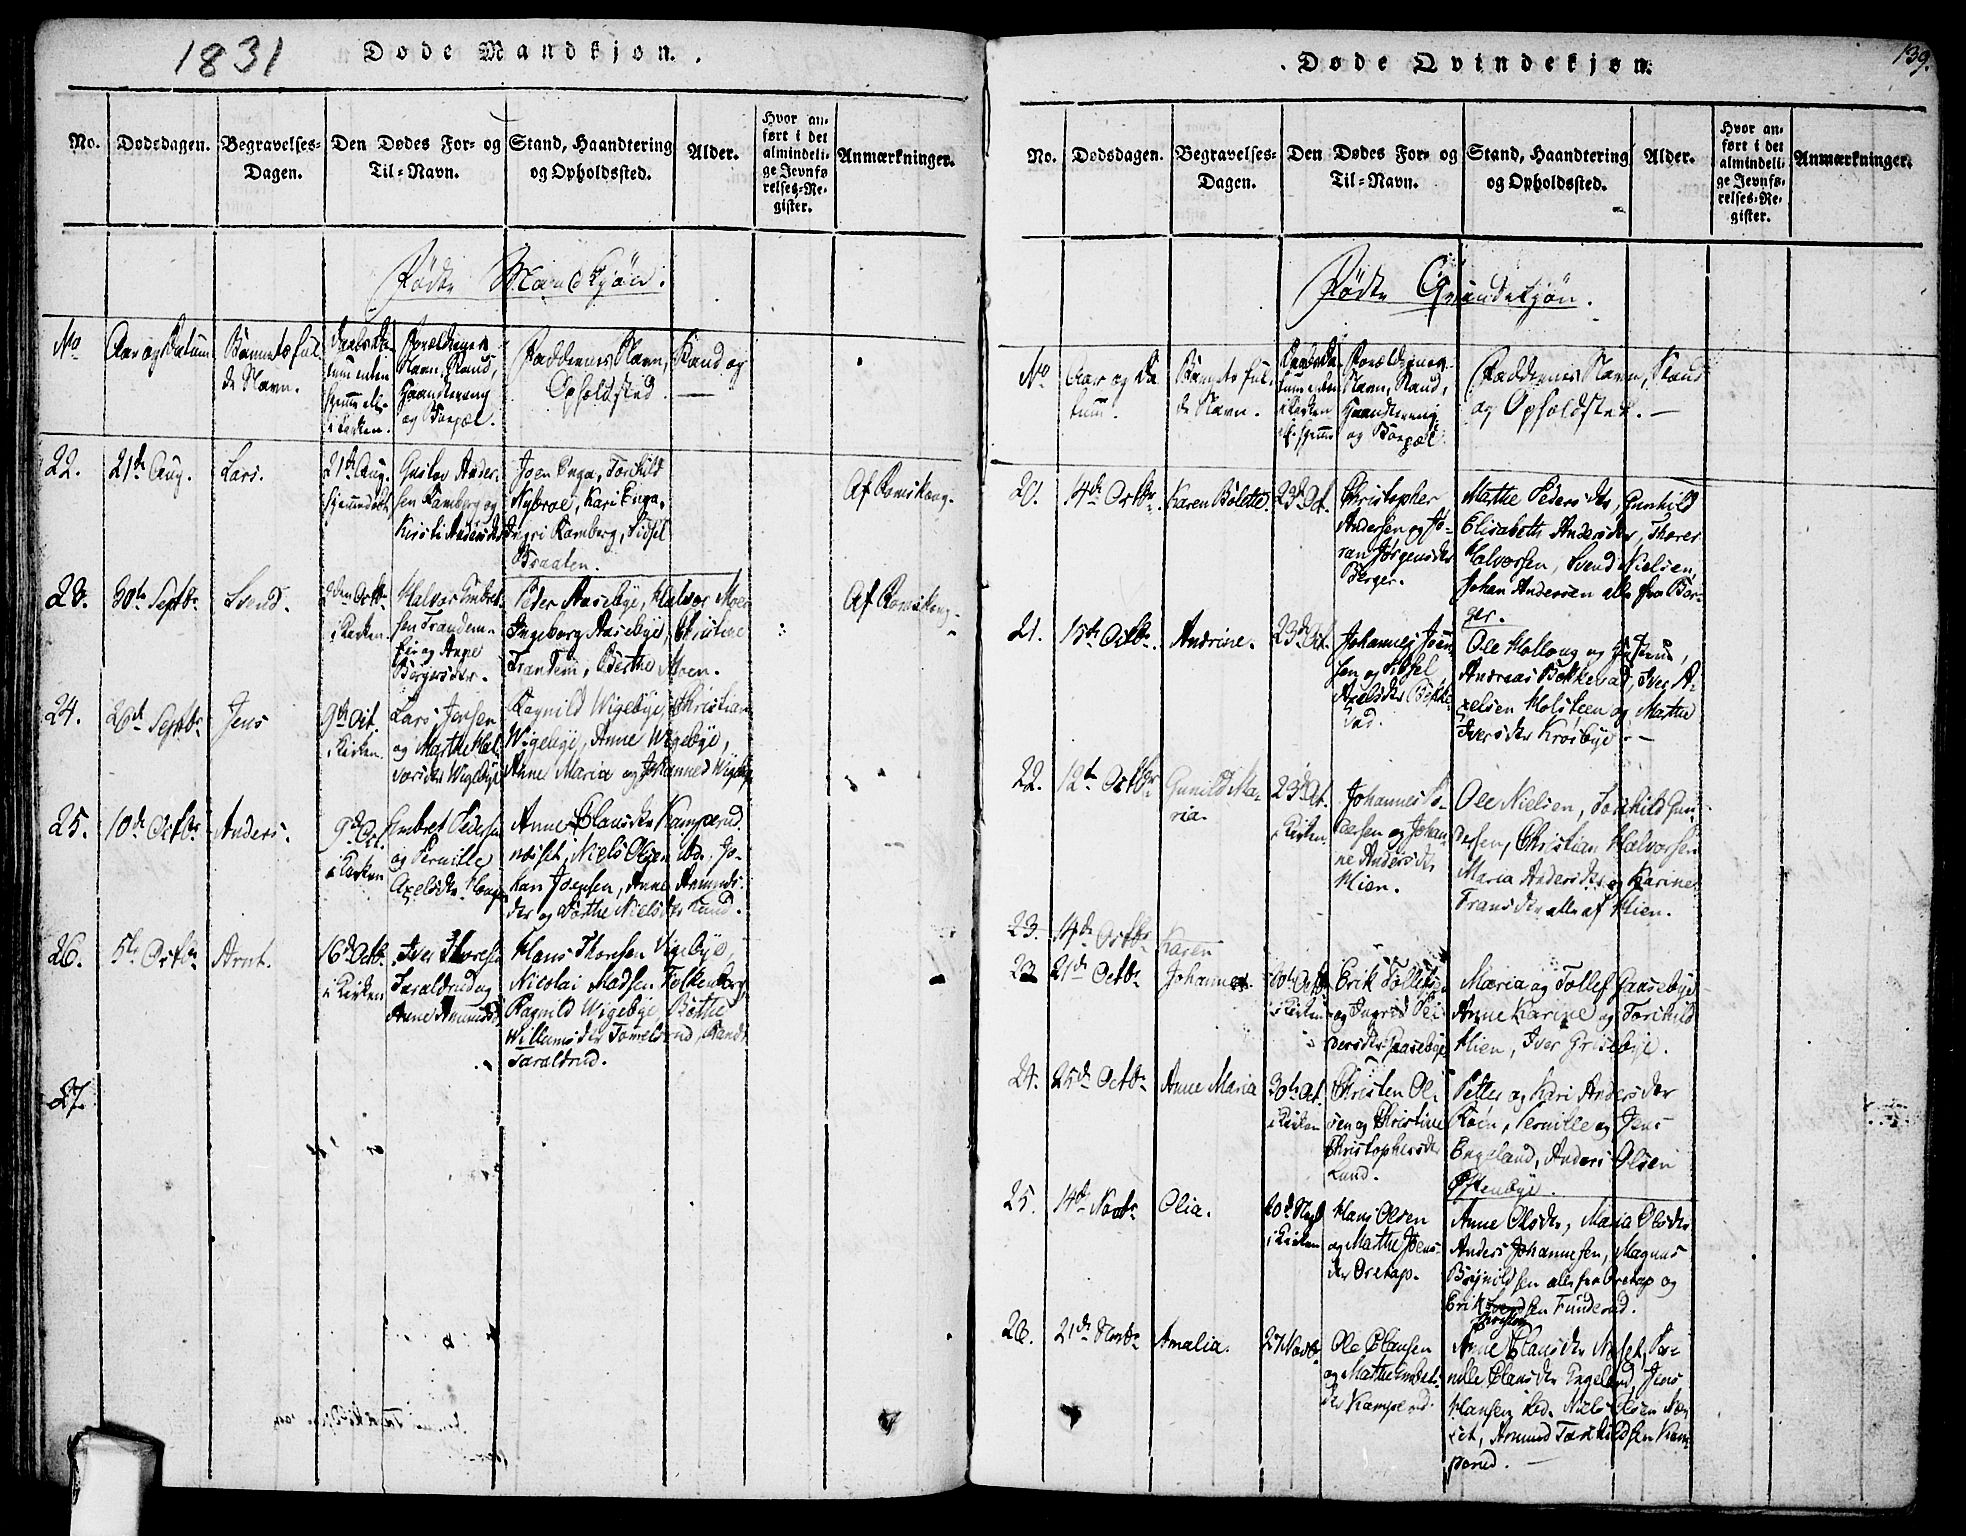 1831
Døde Mandkjøn.
No.
Dødsdagen.
Begravelses-
Dagen.
Den Dødes For- og
Til-Navn.
Stand, Haandtering
og Opholdssted.
Alder.
Hvor an-
ført i det
almindeli-
ge Jevnfø-
relses-Re-
gister.
Anmærkninger.
Fødte Mandkjøn.
No
Aar og Datum
Barnets ful-
de Navn.
Daabsda-
tum enten
hjemme ell.
i Kirken.
Forældrenes
Navn, Stand,
Haandtering
og Bopæl.
Faddernes Navn, Stand og
Opholdsted.
22.
21de Aug.
Lars.
21de Aug.
hjemmedøbt
Gustav Ander-
sen Ramberg og
Kirsti Andersdr
Joen Enga, Torchild
Nybroe, Kari Enga,
Ingri Ramberg, Sidsel
Braaten.
Af Romskoug.
23.
30te Septbr.
Svend.
2den Octbr.
i Kirken.
Halvor Embret-
sen Trandem-
eie og Anne
Børgersdr.
Peder Aasebye, Halvor Moen
Ingeborg Aasebye, Christine
Trandem, Berthe Moen.
Af Romskoug.
24.
26de Septbr
Jens
9de Oct.
i Kirken.
Lars Jensen
og Marthe Hal-
vorsdr Wigebye
Ragnild Wigebye, Christian
Wigebye, Anne Wigebye,
Anne Maria og Johannes Wigebye
25.
10de Octbr
Anders.
9de Oct.
i Kirken
Embret Peders
og Pernille
Axelsdr Haugen
Anne Clausdr Kamperud
næsset, Niels Olsen ibd., Jo-
han Joensen, Anne Amunds-
dr og Dorthe Nielsdr Lund.
26.
5te Octbr
Arnt.
16de Octb.
i Kirken
Iver Thoresen
Taraldrud og
Anne Amundsd.
Hans Thoresen Wigebye,
Nicolai Madsen Folkenborg,
Ragnild Wigebye, Berthe
Willumsdr Tomelsrud, Randi
Taraldrud.
27.
139.
Døde Qvindekjøn.
No.
Dødsdagen.
Begravelses-
Dagen.
Den Dødes For- og
Til-Navn.
Stand, Haandtering
og Opholdssted.
Alder.
Hvor an-
ført i det
almindeli-
ge Jevnfø-
relses-Re-
gister.
Anmærkninger.
Fødte Qvindekjøn.
No
Aar og Da-
tum.
Barnets ful-
de Navn.
Daabsda-
tum enten
i Kirken
el. hjemme
Forældrenes
Navn, Stand,
Haandtering
og Bopæl
Faddernes Navn, Stand
og Opholdsted.
20.
4de Octbr.
Karen Bolette.
23de Oct.
Christopher
Andersen og Jø-
ran Jørgensdr
Berger.
Mathe Pedersdr, Gunhild
Elisabeth Andersdr, Thores
Halvorsen, Svend Nielsen,
Johan Andersen alle fra Ber-
ger.
21.
15de Octbr.
Andrine.
23de Oct.
Johannes Joen-
sen og Sidsel
Axelsdr Bække-
vad.
Ole Kolloug og Hustrue,
Andreas Bækkevad, Iver A-
xelsen Holsteen og Marthe
Iversdr Krosbye.
22.
12te Octbr
Gunild Ma-
ria.
23de Oct.
i Kirken.
Johannes
og Johan-
ne Andersdr
Mien.
Ole Nielsen, Torchild Gun-
dersen, Christian Halvorsen
Maria Andersdr og Karine
Fransdr alle af Mien.
23.
14de Octbr
Karen
23
21de Octbr
Johanne.
30te Octb
i Kirken
Erik Tollefs.
og Ingrid Pe-
dersdr Gaasebye
Maria og Tollef Gaasebye
Anne Karine og Torchild
Mien, Iver Grisebye.
24.
25de Octbr
Anne Maria
30te Oct.
i Kirken
Christen Ol-
sen og Christine
Christophersdr
Lund.
Petter og Kari Andersdr
Røen, Pernille og Jens
Engeland, Anders Olsen
Østenbye.
25.
14de Novbr.
Olia.
20de Novb
i Kirken
Hans Olsen
og Mathe Joens-
dr Øretap.
Anne Olsdr, Maria Olsdr
Anders Johannesen, Magnus
Brynildsen alle fra Øretap og
Erik Svendsen Funderud.
26.
21de Novbr
Amalia.
27 Novbr
Ole Clausen
og Mathe Embrets-
dr Kamperud.
Anne Clausdr Næset, Per-
nille Clausdr Engeland, Jens
Hansen ibd. Niels Olsen Næs-
set, Amund Torchildsen Kam-
perud.